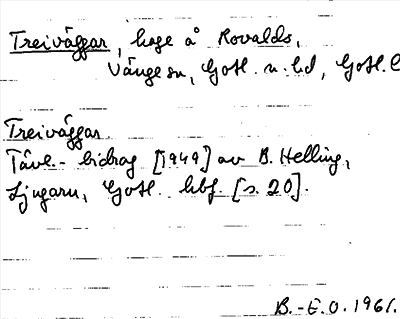 Treiväggar, hage å Rovalds,
Vänge sn, Gotl. n. hd, Gotl. l
Treiväggar.
Tävl.-bidrag [1949] av B. Helling,
Ljugarn, Gotl. hbf. [s. 20].
B.-E.O. 1961.